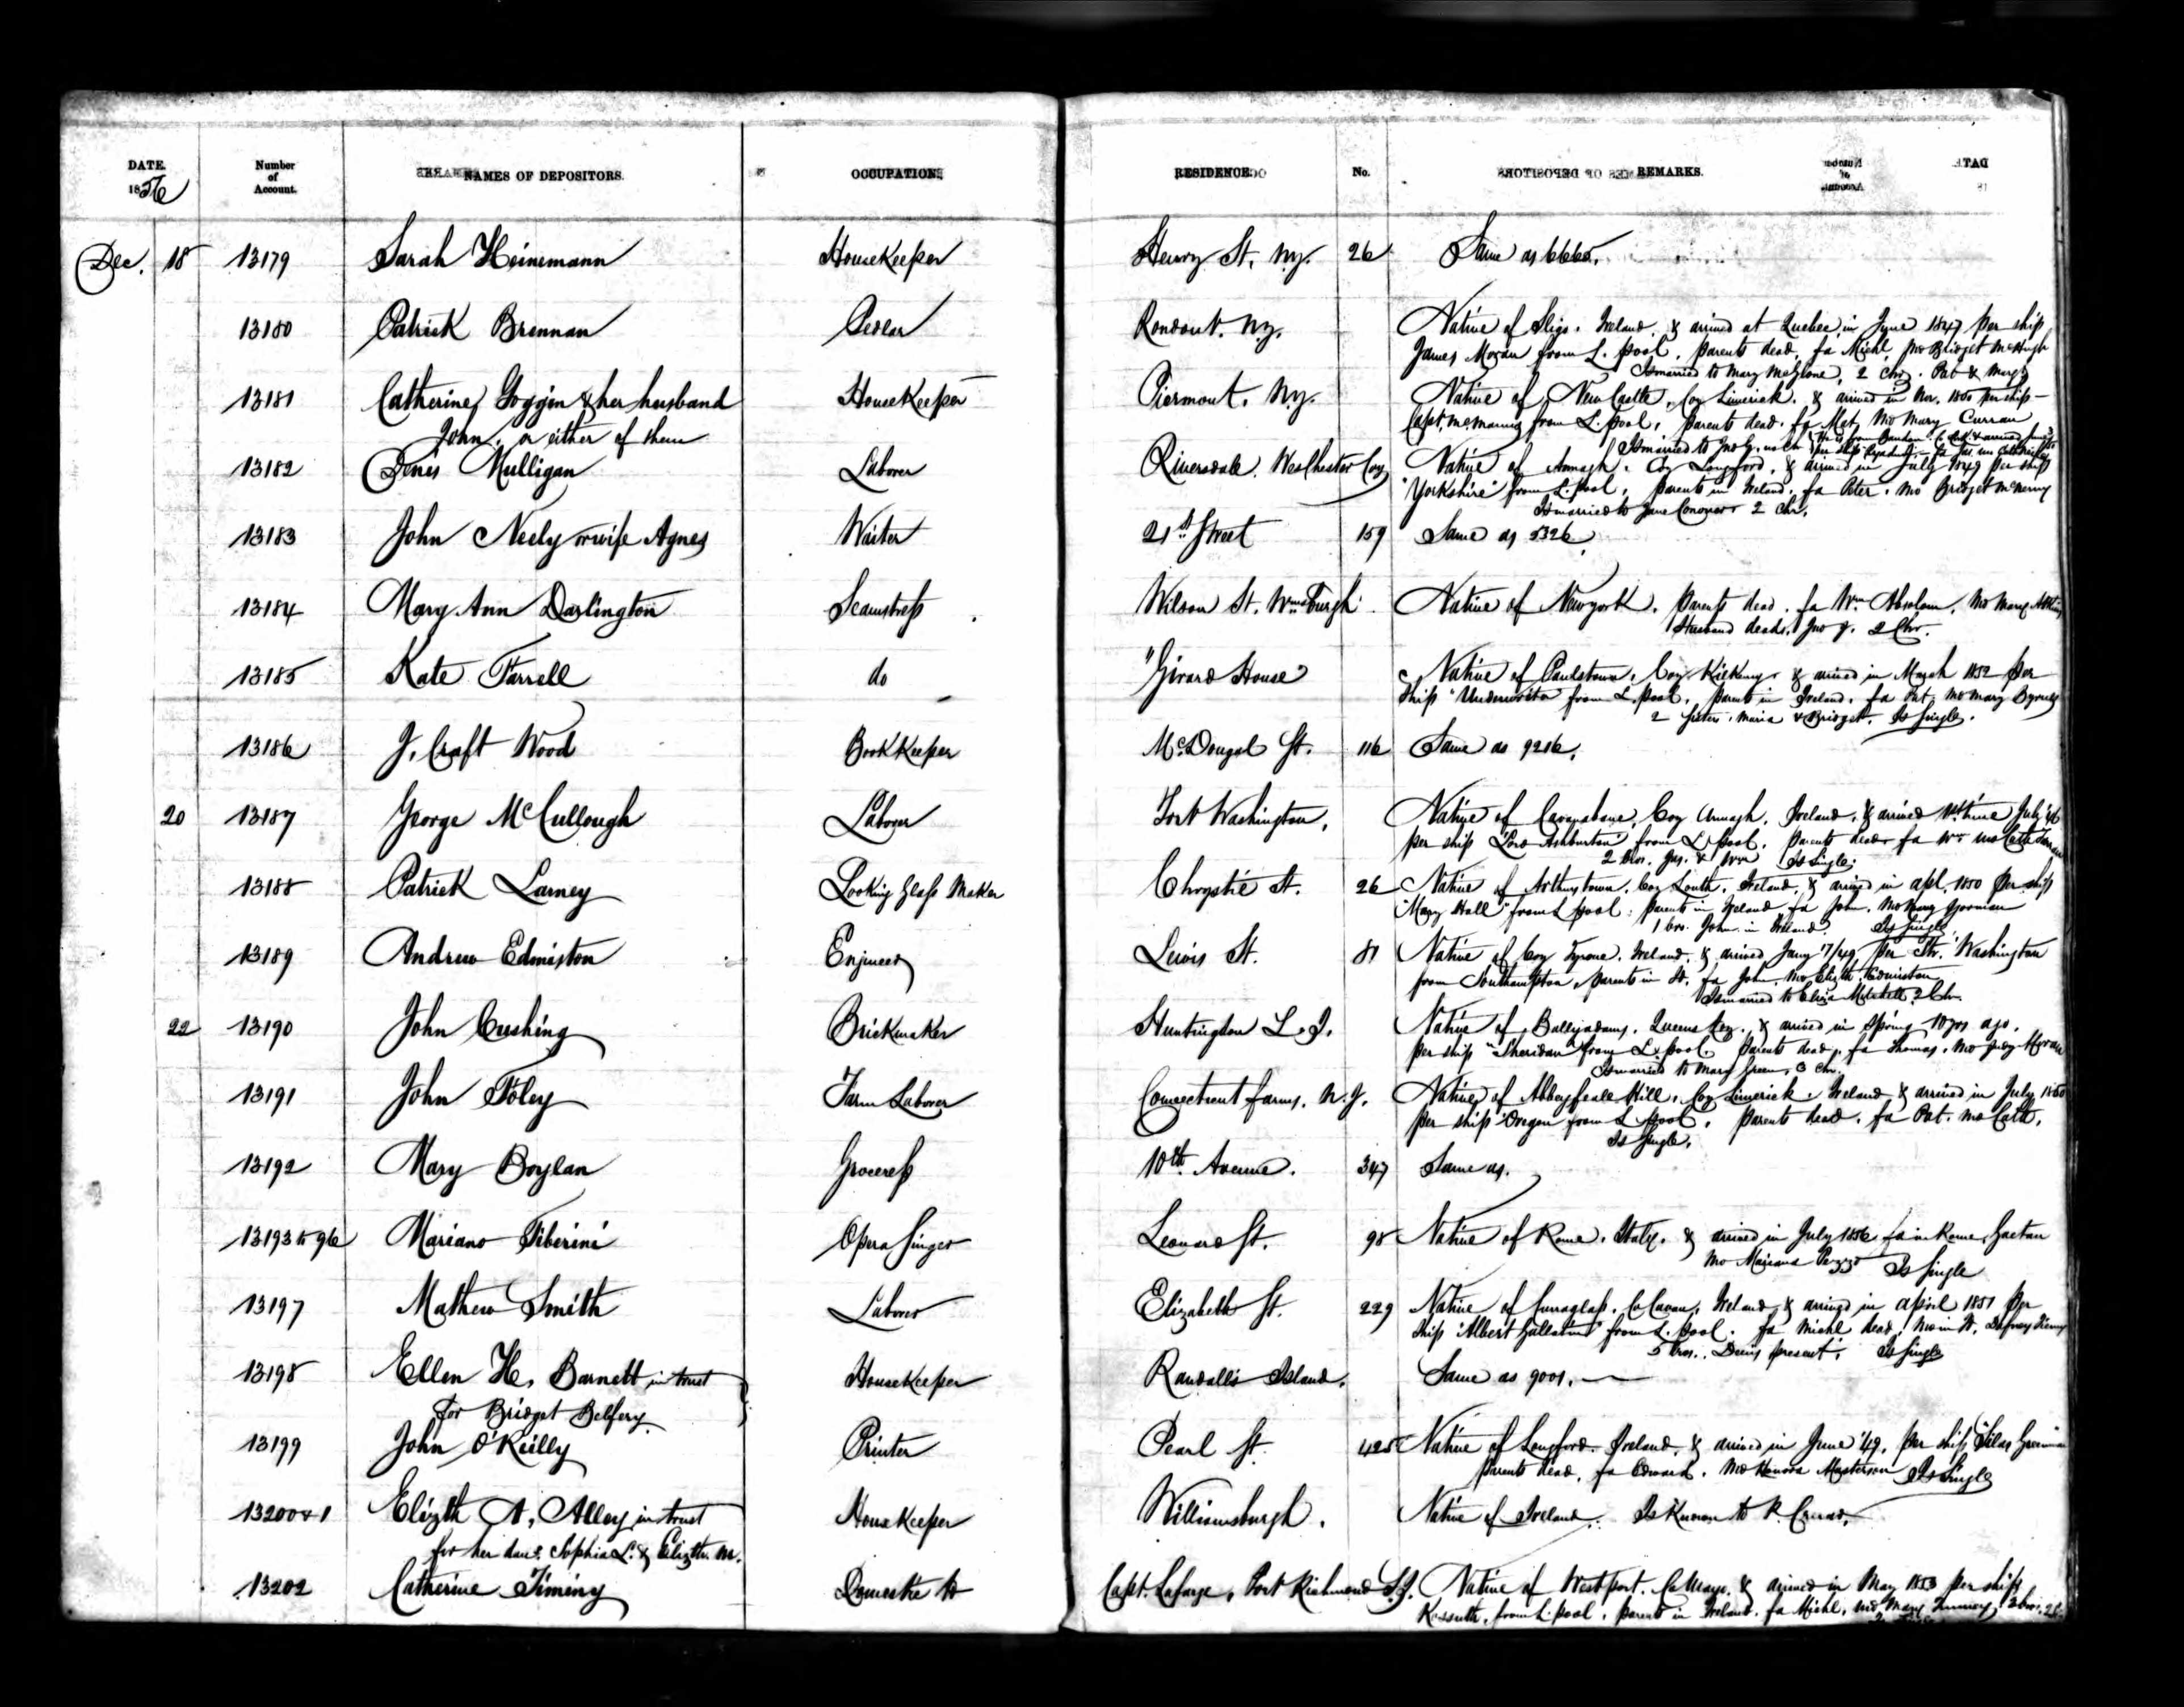 DATE. Number of Account. NAMES OF DEPOSITORS. OCCUPATION. RESIDENCE. No. REMARKS.
1856
Dec. 18 13179 Sarah Heinemann HouseKeeper Henry St. N.y. 26 Same as 6665.
13180 Patrick Brennan Pedlar Rondout. N.y. Native of Sligo. Ireland. & arrived at Quebec in June 1847 per ship
James Moran from L. pool. parents dead. fa Michl, mo Bridget McHugh
Is married to Mary McGlone, 2 chn. Pat & Margt
13181 Catherine Goggin & her husband HouseKeeper Piermont. N.y. Native of New Castle, Coy Limerick. & arrived in Nov. 1850 per ship
John. or either of them from L. pool, parents dead. fa Mat, mo Mary Curran
Is married to Jno G.
13182 Denis Mulligan Laborer Riversdale. WestChester Coy Native of Coy Longford, & arrived in July 1849 per ship
"Yorkshire" from L. pool, parents in Ireland. fa Peter. mo Bridget McNerny
Is married to Jane 2 chn.
13183 John Neely or wife Agnes Waiter 21st Street 159 Same as 5326
13184 Mary Ann Darlington Seamstress Wilson St. Wmsburgh. Native of New york. parents dead. fa Wm Absolom. mo Mary
Husband dead. Jno 2 Chn.
13185 Kate Farrell do "Girard House" Native of Paulstown. Coy Kilkenny. & arrived in March 1852 per
ship "Underwriter from L. pool. parents in Ireland. fa Pat, mo Mary Byrnes
2 sisters. Maria & Bridget. Is single.
13186 J. Craft Wood BookKeeper McDougal St. 116 Same as 9216.
20 13187 George McCullough Laborer Fort Washington. Native of Coy Armagh. Ireland. & arrived 1st time July
per ship "Lord Ashburton" from L. pool. parents dead. fa Wm mo Cath
2 bros. Jas. & Wm Is single.
13188 Patrick Larney Looking Glass Maker Chrystie St. 26 Native of Arthurstown. Coy Louth. Ireland, & arrived in apl. 1850 per ship
"Mary Hall" from L pool. parents in Ireland fa John. mo Mary Gorman
1 bro. John in Ireland. Is single
13189 Andrew Edmiston Engineer Lewis St. 81 Native of Coy Tyrone. Ireland. & arrived Jany 7/49 per Str. Washington
from Southampton. parents in St. fa John. mo Elizth. Edmiston
Is married to Eliza Mitchell 2 Chn.
22 13190 John Cushing BrickmaKer Huntington L. I. Native of Ballyadams. Queens Coy. & arrived in Spring 10 yrs ago.
per ship "Sheridan" from L pool. parents dead. fa Thomas. mo Judy Moran
Is married to Mary Green. 3 chn.
13191 John Foley Farm Laborer Connecticut farms. N. J. Native of Abbeyfeale Hill. Coy Limerick. Ireland & arrived in July 1850
per ship "Oregon from L pool. parents dead. fa Pat. mo Cath.
Is Single.
13192 Mary Boylan Groceress 10th. Avenue. 347 Same as.
13193 to 96 Mariano Tiberini Opera Singer Leonard St. 98 Native of Rome. Italy. & arrived in July 1856 fa in Rome, Gaetan
mo Mariana Is Single
13197 Mathew Smith Laborer Elizabeth St. 229 Native of Co Cavan. Ireland & arrived in april 1851 per
ship "Albert Gallatin" from L. pool. fa Michl dead. mo in N.
5 bros. Denis present. Is Single
13198 Ellen H. Barnett in trust HouseKeeper Randall's Island. Same as 9001.
for Bridget Belfery
13199 John O'Reilly Printer Pearl St. 425 Native of Longford. Ireland. & arrived in June '49. per ship Silas Greenman
parents dead. fa Edward. mo Honora Masterson Is Single
13200 & 1 Elizth A. Alley in trust HouseKeeper Williamsburgh. Native of Ireland. Is Known to P.
for her daus. Sophia L. & Elizth. M.
13202 Catherine Timiny Domestic to Capt. Lafarge, Port Richmond S. I. Native of Westport. Co Mayo. & arrived in May 1853 per ship
Kossuth. from L. pool. parents in Ireland. fa Michl. mo Mary